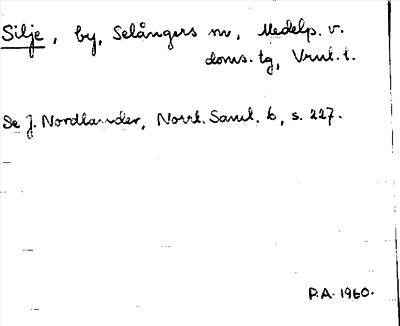 Silje, by, Selångers sn, Medelp. v.
doms. tg, Vrnl. l.
Se J. Nordlander, Norrl. Saml. b, s. 227.
P.A. 1960.